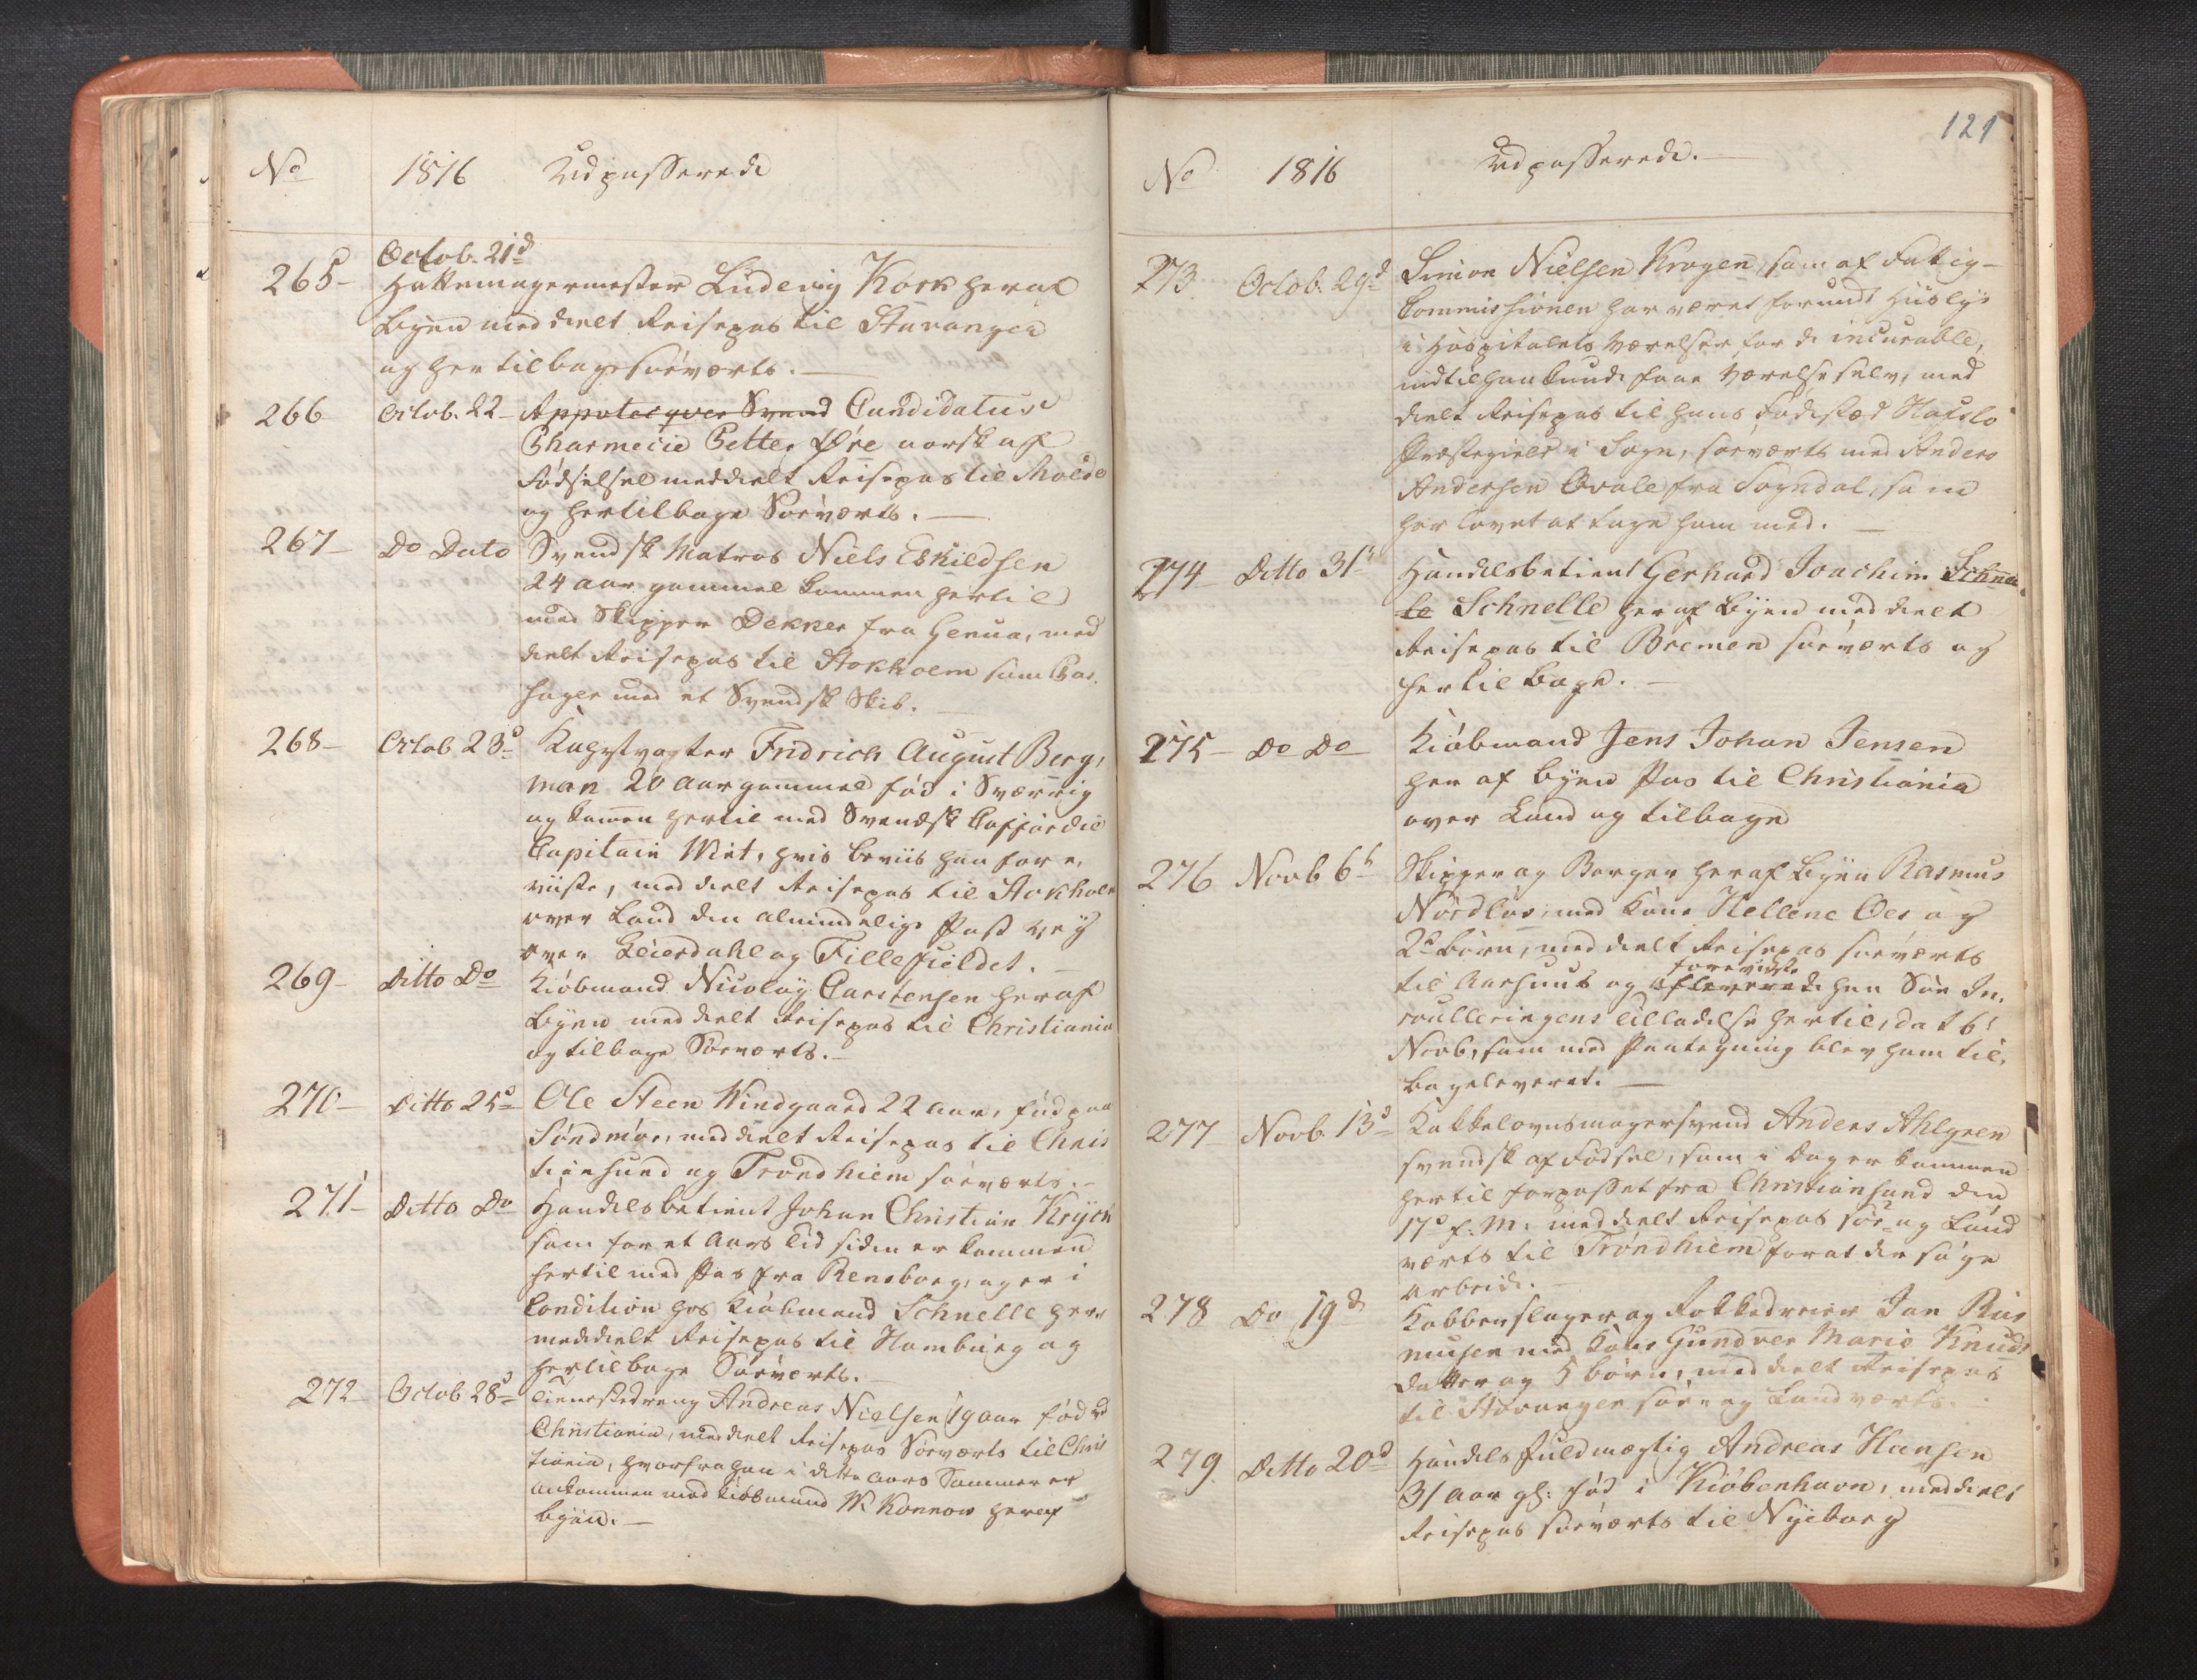 No 1816 Udpasserede
Octob. 21d
265- Hattemagermester Ludevig Kork heraf
Byen meddeelt Reisepas til Stavanger
og her tilbage søeværts.
266 Octob. 22- Appoteqver Svend Candidatus
Pharmecie Petter Øre norsk af
Fødselsel meddeelt Reisepas til Molde
og hertilbage Søeværts.
267- Do Dato Svendsk Matros Niels Eskildsen
24 aar gammel kommen hertil
med Skipper Dekker fra Genua, med
deelt Reisepas til Stokholm som Pas-
sager med et Svendsk Skib.
268- Octob 23d Fridrich August Berg,
man 20 aar gammel fød i Sværrig
og kommen hertil med Svendsk Coffardie
Capitain Wiet, hvis beviis han fore,
viiste, meddeelt Reisepas til Stokholm
over Land den almindelige Post Vey
over Leierdahl og Fillefieldet.
269- Ditto Do Kiøbmand Nicolay Carstensen heraf
Byen meddeelt Reisepas til Christiania
og tilbage Søeværts.
270- Ditto 25d Ole Steen Windgaard 22 aar, fød paa
Søndmør, meddeelt Reisepas til Chris
tiansund og Trondhiem søeværts.-
271- Ditto Do Handelsbetient Johan Christian Krÿck
som for et Aars Tid siden er kommen
hertil med Pas fra Rensborg, og er i
Condition hos Kiøbmand Schnelle her,
meddeelt Reisepas til Hamburg og
hertilbage Søeværts.
272- Octob 28d Tienestedreng Andreas Nielsen 19 aar fød ved
Christiania, meddeelt Reisepas Søeværts til Chris
tiania, hvorfra han i dette Aars Sommer er
ankommen med Kiøbmand W. Konnow heraf
byen.-
121
No 1816 Udpasserede.-
273 Octob. 29d Simon Nielsen Krogen, som af Fattig-
Commissionen har været forundt Huuslye
i Hospitalets Værelser for de incurable,
indtil han kunde faae Værelse selv, med
deelt Reisepas til hans Fødested Hafslo
Præstegield i Sogn, søeværts med Anders
Andersen Qvale fra Sogndal, som
har lovet at tage ham med.
274- Ditto 31te Handelsbetient Gerhard Joachim Schnel
le Schnelle her af Byen meddeelt
Reisepas til Bremen søeværts og
hertilbage.-
275- Do Do Kiøbmand Jens Johan Jensen
her af byen Pas til Christiania
over Land og tilbage
276 Novb 6te Skipper og Borger heraf byen Rasmus
Nordlos, med Kone Hellene Oes og
2de børn, meddeelt Reisepas søeværts
foreviiste
til Aarhuus og afleverede han Søe In,
roulleringens Tilladelse hertil, dat 6te
Novb, som med Paategning blev ham til,
bageleveret.
277- Novb. 13d Kakkelovnsmagersvend Anders Ahlgren
svendsk af Fødsel, som i Dag er kommen
hertil forpasset fra Christiansand den
17d f: M: meddeelt Reisepas søe og Land
værts til Trondhiem for at der søge
Arbeide.-
278 Do 19d Kobberslager og Rokkedreier Jan Ras
musen med Kone Gundver Marie Knuds
datter og 5 børn, meddeelt Reisepas
til Stavanger søe og Landværts.
279 Ditto 20d Handels Fuldmægtig Andreas Hansen
31 Aar gl: fød i Kiøbenhavn, meddeelt
Reisepas søeværts til Nyeborg